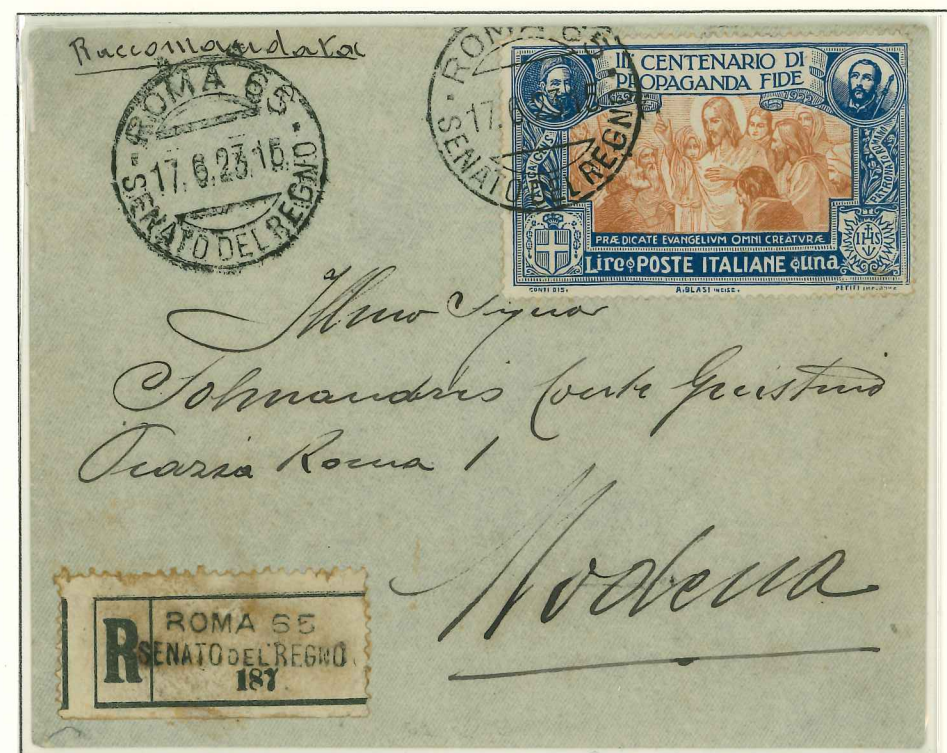 Raccomandata
ROMA 65
17.6.23.15
SENATO DEL REGNO
ROMA 65
17.6.23.15
SENATO DEL REGNO
III CENTENARIO DI
PROPAGANDA FIDE
PRÆDICATE EVANGELIVM OMNI CREATVRÆ
IHS
Lire POSTE ITALIANE una
CONTI DIS.
A. BLASI INCISE.
PETITI
Illmo Signor
Conte Giustino
Piazza Roma 1
Modena
R
ROMA 65
SENATO DEL REGNO
187